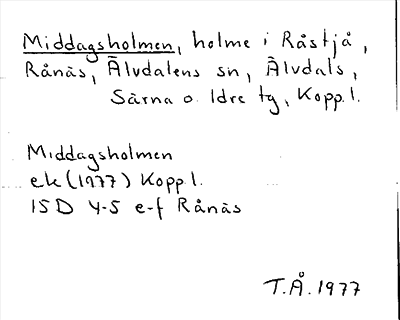 Middagsholmen, holme i Råstjå,
Rånäs, Älvdalens sn, Älvdals,
Särna o. Idre tg, Kopp.l.
Middagsholmen
ek (1977) Kopp.l.
15D 4-5 e-f Rånäs
T.Å. 1977